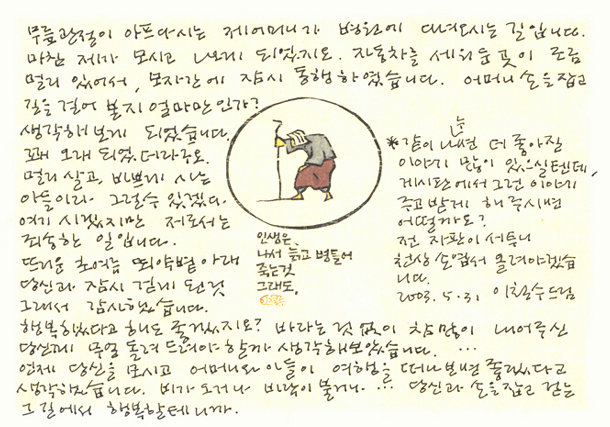 무릎관절이 아프다시는 제어머니가 병원에 다녀오시는 길입니다.
마침 제가 모시고 나오게 되었지요. 자동차를 세워둔 곳이 조금
멀리 있어서, 모자간에 잠시 동행하였습니다. 어머니 손을 잡고
길을 걸어 본지 얼마만인가?
생각해보게 되었습니다.
꽤 오래 되었더라구요.
멀리 살고, 바쁘게 사는
아들이라 그럴수 있겠다.
여기시겠지만 저로서는
죄송한 일입니다.
뜨거운 초여름 뙤약볕 아래
당신과 잠시 걷게 된것
그래서 감사했습니다.
행복하였다고 해도 좋겠지요? 바라는 것 없이 참 많이 내어주신
당신께 무얼 돌려드려야 할까 생각해보았습니다. …
언제 당신을 모시고 어머니와 아들이 여행을 떠나보면 좋겠다고
생각했습니다. 비가 오거나 바람이 불거나 … 당신과 손을 잡고 걷는
그 길에서 행복할테니까.
인생은,
나서 늙고 병들어
죽는것
그래도,
*같이 나누면 더 좋아질
이야기 많이 있으실텐데,
게시판에서 그런 이야기
주고받게 해주시면
어떨까요?
전 자판이 서투니
천상 손엽서 올려야겠습
니다.
2003.5.31 이철수드림